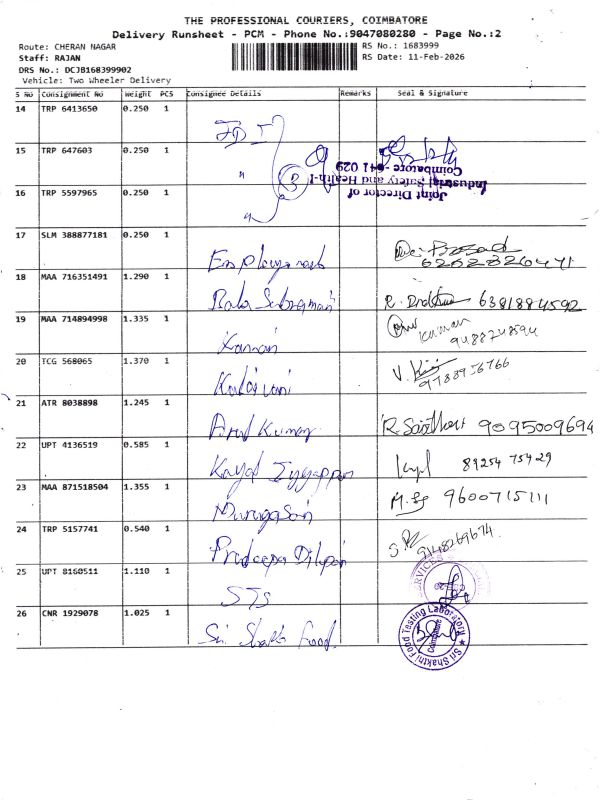 THE PROFESSIONAL COURIERS, COIMBATORE
Delivery Runsheet - PCM - Phone No.:9047080280 - Page No.:2
Route: CHERAN NAGAR
RS No.: 1683999
Staff: RAJAN
RS Date: 11-Feb-2026
DRS No.: DCJB168399902
Vehicle: Two Wheeler Delivery
S No Consignment No Weight PCS Consignee Details Remarks Seal & Signature
14 TRP 6413650 0.250 1
15 TRP 647603 0.250 1
Joint Director of
Industrial Safety and Health-I
Coimbatore - 641 029
16 TRP 5597965 0.250 1
17 SLM 388877181 0.250 1
18 MAA 716351491 1.290 1
Bala Subramani 6381884592
19 MAA 714894998 1.335 1
Kannan Kannan
9488248594
20 TCG 568065 1.370 1
Kalaivani 9788956766
21 ATR 8038898 1.245 1
Arul Kumar 9095009694
22 UPT 4136519 0.585 1
Kayal Iyyappan 89254 75429
23 MAA 871518504 1.355 1
Murugesan 9600715111
24 TRP 5157741 0.540 1
9148269674
25 UPT 8160511 1.110 1
STS SERVICES
26 CNR 1929078 1.025 1
Sri Shakthi Food
Sri Shakthi Food Testing Laboratory
Coimbatore